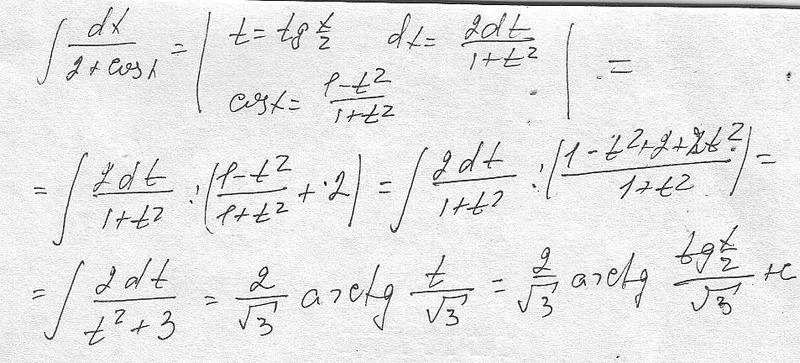 ∫ dx/(2+cosx) = | t = tg x/2   dx = 2dt/(1+t²)   cosx = (1-t²)/(1+t²) | =
= ∫ 2dt/(1+t²) : ((1-t²)/(1+t²) + 2) = ∫ 2dt/(1+t²) : ((1-t²+2+2t²)/(1+t²)) =
= ∫ 2dt/(t²+3) = 2/√3 arctg t/√3 = 2/√3 arctg (tg x/2)/√3 + c